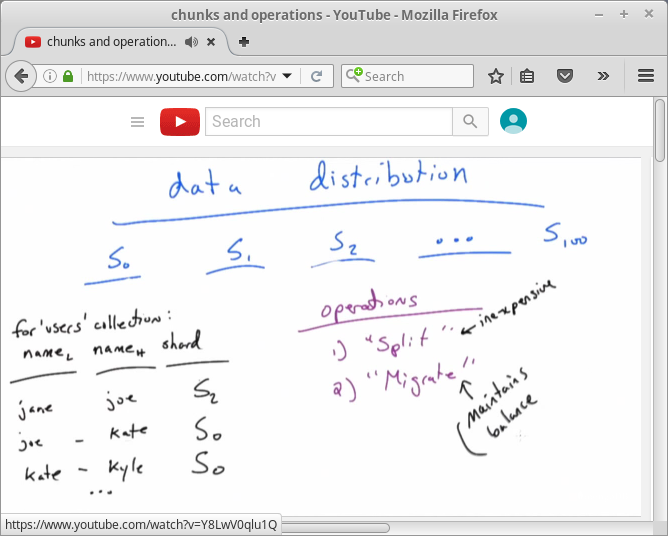 chunks and operations - YouTube - Mozilla Firefox
chunks and operation...
https://www.youtube.com/watch?v
Search
Search
data distribution
S0 S1 S2 ... S100
for 'users' collection:
nameL nameH shard
jane joe S2
joe - kate S0
kate - kyle S0
...
operations
1) "Split" ← inexpensive
2) "Migrate"
Maintains
balance
https://www.youtube.com/watch?v=Y8LwV0qlu1Q